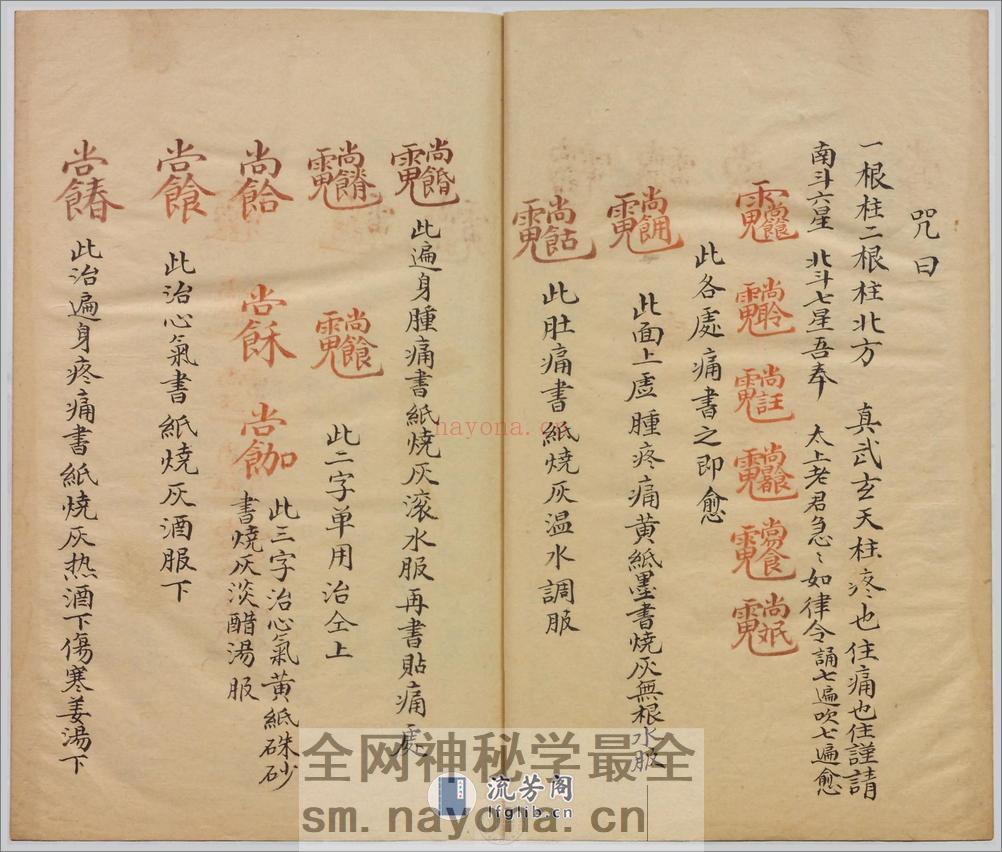 咒曰
一根柱二根柱北方 真武玄天柱疼也住痛也住謹請
南斗六星 北斗七星吾奉 太上老君急〻如律令誦七遍吹七遍愈
此各處痛書之即愈
此面上虛腫疼痛黄紙墨書燒灰無根水服
此肚痛書紙燒灰温水調服
此遍身腫痛書紙燒灰滚水服再書貼痛處
此二字单用治仝上
此三字治心氣黄紙硃砂
書燒灰淡醋湯服
此治心氣書紙燒灰酒服下
此治遍身疼痛書紙燒灰热酒下傷寒姜湯下
nayona.cn
全网神秘学最全
流芳阁
lfglib.cn
sm.nayona.cn